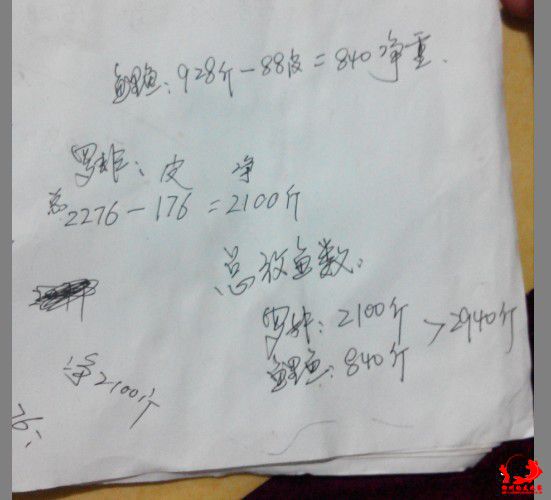 鲤鱼:928斤-88皮=840净重.
罗非: 皮 净
总2276-176=2100斤
总放鱼数:
罗非:2100斤
鲤鱼:840斤 >2940斤
净2100斤
76;